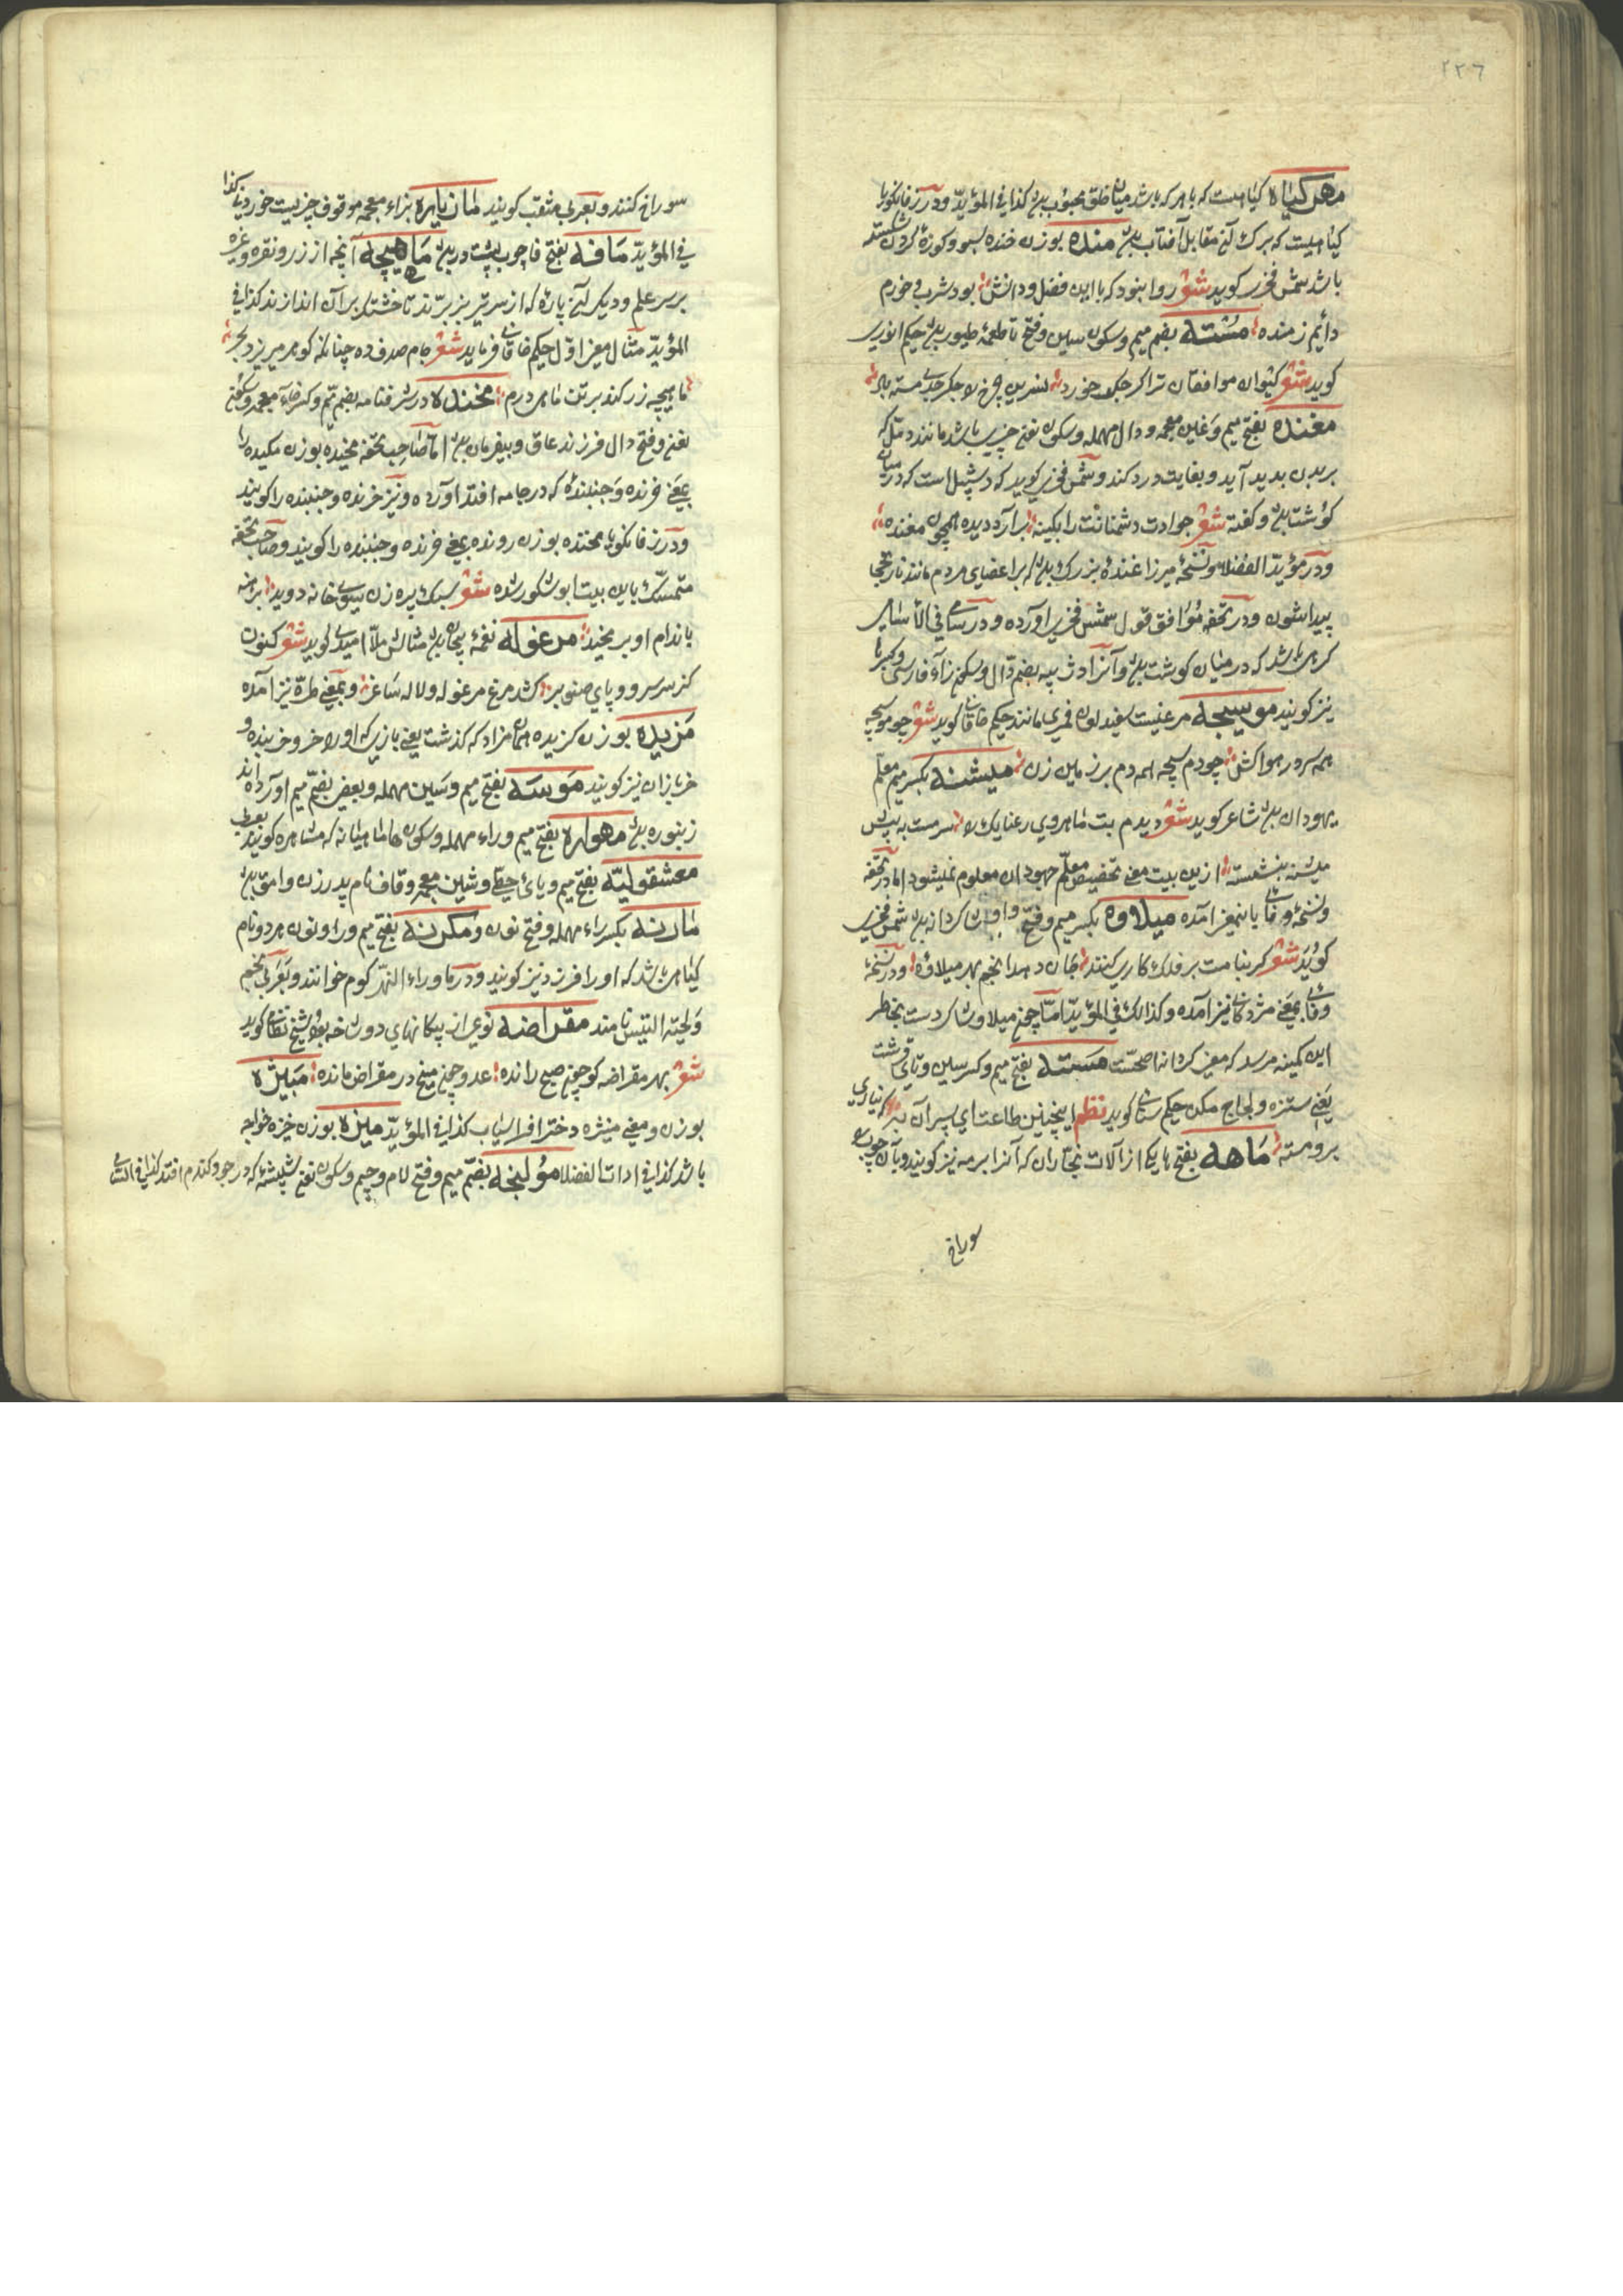 ٢٢٦
مهر کیاه کیاهیست که با هر که باشد میان خلق محبوب بود کذا فی المؤید ودر زفانکویا
کیاهیست که برک آن مقابل آفتاب بود منده بوزن خنده سبو وکوزه کردن شکسته
باشد شمس فخری کوید شعر روا نبود که با این فضل ودانش بود شربم خورم
دائم ز منده مسته بضم میم وسکون سین وفتح تا طعمه طیور بود حکیم انوری
کوید شعر کیوان موافقان ترا کر جکر خورد نسرین چرخ را جکر جدی مسته باد
مغنده بفتح میم وغین معجمه ودال مهمله وسکون نون چیزی باشد مانند دمل که
بر بدن بدید آید وبغایت درد کند وشمس فخری کوید که دشپیل است که در میان
کوشت بود وکفته شعر حوادت دشمنانت را بکینه برآرد دیده همچون مغنده
ودر مؤید الفضلا ونسخه میرزا غنده بزرک بود که بر اعضای مردم مانند نارنجی
پیدا شود ودر تحفه موافق قول شمس فخری آورده ودر سامی فی الأسامی
کرهی باشد که در میان کوشت بود وآنرا دژپیه بضم دال وسکون زاء فارسی وکسر با
نیز کویند موسیجه مرغیست سفید لون قمری مانند حکیم خاقانی کوید شعر چو موسیجه
همه سر در هوا کش چو دم سیجه همه دم بر زمین زن میشنه بکسر میم معلم
یهودان بود شاعر کوید شعر دیدم بت ماهروی رعنایک را سرمست به پیش
میشنه بنشسته ازین بیت معنی تخصیص معلم جهودان معلوم نمیشود اما در تحفه
ونسخه وفائی باینمعنی آمده میلاوه بکسر میم وفتح واو شاکردانه بود شمس فخری
کوید شعر کر بنامت بر فلک کاری کنند جان دهد انجم بهر میلاوه ودر نسخه
وفائی بمعنی مژدکانی نیز آمده وکذلک فی المؤید اما چون میلاو شاکردست بخاطر
این کمینه میرسد که معنی شاکردانه اصحست مسته بفتح میم وکسر سین وتای قرشت
یعنی ستزه ولجاج مکن حکیم سنائی کوید نظم اینچنین طاعت ای پسر آن به که نیاری
برو مسته ماهه بفتح ها یکی از آلات نجاران که آنرا برمه نیز کویند وبآن چوب
سوراخ
سوراخ کنند وبعربی مثقب کویند مازیاره بزاء معجمه موقوف چیزیست خوردنی کذا
فی المؤید مافه بفتح فا چوب پشت در بود ماهیچه آنچه از زر ونقره وغیره
بر سر علم ودیکر آن پاره که از سر تیر بزیر برند تا خشتک بر آن اندازند کذا فی
المؤید مثال معنی اول حکیم خاقانی فرماید شعر جام صدف ده چنانکه کوهر میریزد بحر
ماهیچه زر کند بر تن ماهی درم مخنده در شرفنامه بضم میم وکسر خاء معجمه وسکون
نون وفتح دال فرزند عاق وبیفرمان بود اما صاحب تحفه مخیده بوزن مکیده را
بمعنی خزنده وجنبنده که در جامه افتد آورده ونیز خزنده وجنبنده را کویند
ودر زفانکویا مخنده بوزن رونده بمعنی خزنده وجنبنده را کویند وصاحب تحفه
متمسک باین بیت ابوشکور شده شعر سبک پیره زن سوی خانه دوید برهنه
باندام او بر مخید مرغوله نغمه پیچان بود مثالش ملا امیدی کوید شعر کنون
کز سر سرو وپای صنوبر کشد مرغ مرغوله ولاله ساغر وبمعنی طره نیز آمده
مزیده بوزن کزیده همان مزاد که کذشت یعنی بازی که او را خر وخربنده و
خربازان نیز کویند موسه بفتح میم وسین مهمله وبعضی بضم میم آورده اند
زنبوره بود مهواره بفتح میم وراء مهمله وسکون ها ماهیانه که مشاهره کویند بعربی
معشقولیه بفتح میم ویای حطی وشین معجمه وقاف نام پدر زن وامق بود
مارنه بکسر راء مهمله وفتح نون ومکرنه بفتح میم ورا ونون هر دو نام
کیاهی باشد که او را فرزد نیز کویند ودر ماوراء النهر کوم خوانند وبعربی نجم
ولحیة التیس نامند مقراضه نوعی از پیکانهای دوشاخه بود شیخ نظامی کوید
شعر بهر مقراضه کو چون صبح رانده عدو چون میخ در مقراض مانده مبیژه
بوزن ومعنی منیژه دختر افراسیاب کذا فی المؤید میزه بوزن خیزه خواجه
باشد کذا فی ادات الفضلا مولنجه بضم میم وفتح لام وجیم وسکون نون شپشه که در جو وکندم افتد